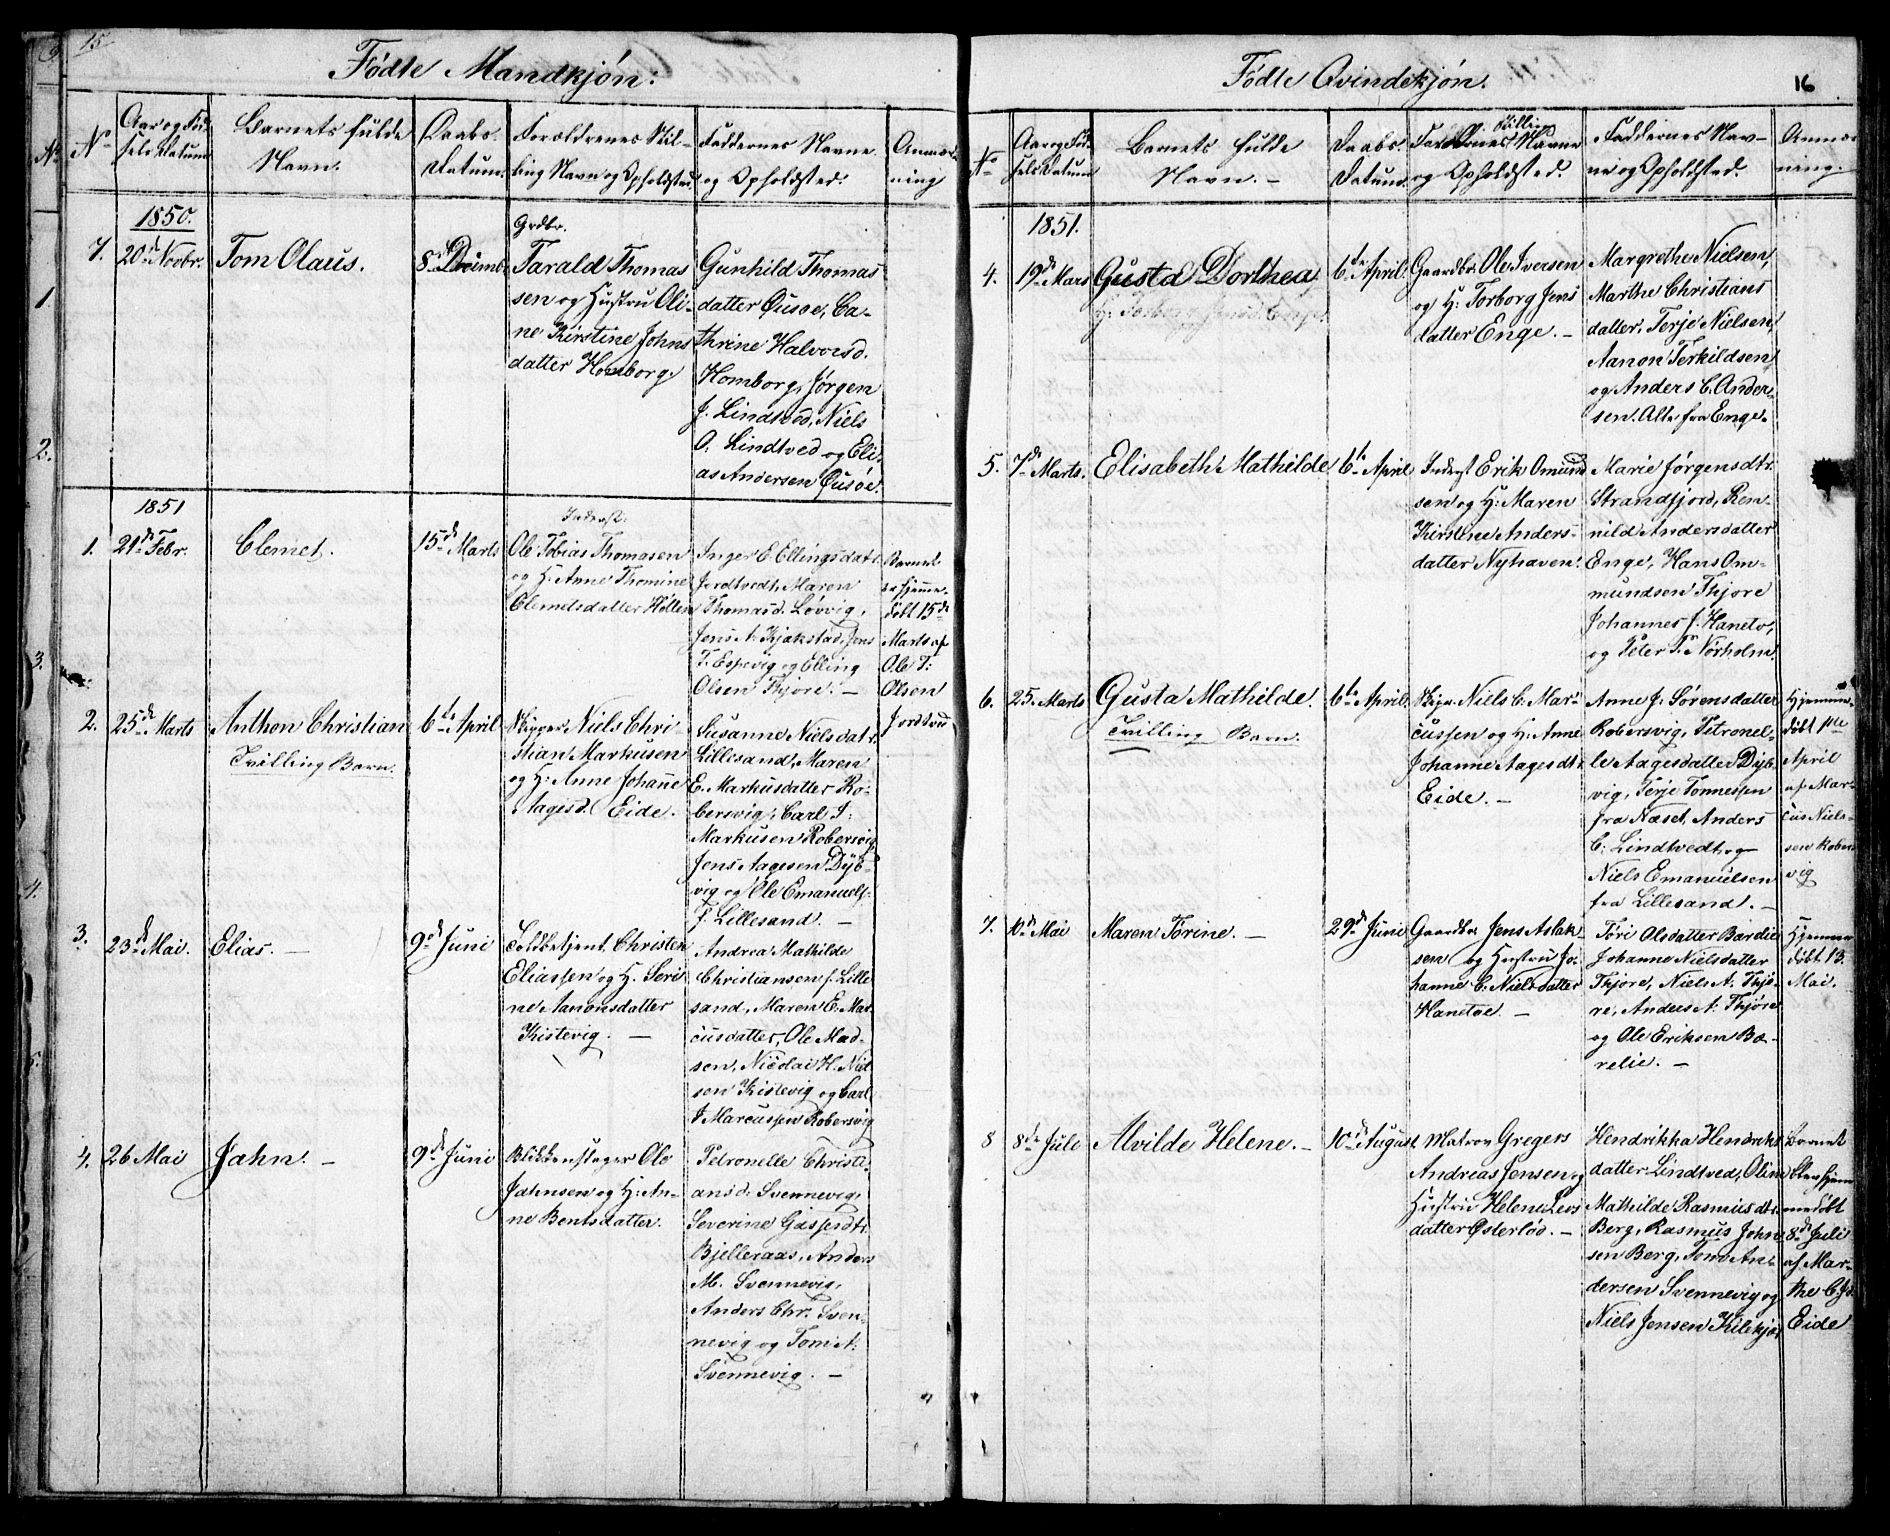 15
Fødte Mandkjøn:
No
No
Aar og Fød-
sels Datum
Barnets fulde
Navn.
Daabs
Datum.
Forældrenes Stil-
ling Navn og Opholdsted
Faddernes Navne
og Opholdsted.
Anmær-
ning
1850.
7.
20de Novbr.
Tom Olaus.
8de Decmbr
Grdbr.
Tarald Thomas
sen og Hustru Oli-
ne Kirstine Johns
datter Homborg.
Gunhild Thomas
datter Øusøe, Ca-
thrine Halvorsd.
Homborg, Jørgen
J. Lindtved, Niels
O. Lindtved og Eli-
as Andersen Øusøe.
1851
1.
21de Febr.
Clemet.
15de Marts
Inderst.
Ole Tobias Thomasen
og H. Anne Thomine
Clemetsdatter Holten
Inger E Ellingsdatr.
Jordtvedt, Maren
Thomasd. Løvvig,
Jens A. Kjøkstad, Jens
T. Espevig og Elling
Olsen Thjore. —
Barnet
er hjemme-
døbt 15de
Marts af
Ole T:
Olsen
Jordtved
2.
25de Marts
Anthon Christian
Tvilling Barn.
6te April
Skipper Niels Chri-
stian Markusen
og H: Anne Johane
Aagesd. Eide.
Susanne Nielsdatr.
Lillesand, Maren
E. Markusdatter Ro-
bersvig, Carl J:
Markusen Robersvig
Jens Aagesen Dyb-
vig og Ole Emanuels-
f. Lillesand. —
3.
23de Mai.
Elias. —
9de Juni
Toldbetjent Christen
Eliassen og H. Seri-
ne Aanonsdatter
Kistevig. —
Andrea Mathilde
Christiansen f. Lille
sand, Maren E. Mar
cusdatter, Ole Mad-
sen, Nicolai H. Niel
sen Kistevig og Carl
J Marcussen Robersvig
4.
26 Mai
Jahn. —
9de Juni
Blikkenslager Ole
Jahnsen og H: An-
ne Bentsdatter.
Petronelle Christi-
ansd: Svennevig,
Severine Gasperdtr.
Bjelleraas, Anders
M. Svennevig,
Anders Chr. Sven-
nevig og Tom A:
Svennevig. —
1
2.
3.
4.
5.
Fødte Qvindekjøn.
16
No
Aar og Fød-
sels Datum
Barnets fulde
Navn. —
Daabs.
Datum.
Stilling
Forældrenes Navne
og Opholdsted.
Faddernes Nav-
ne og Opholdsted.
Anmær
ning.
1851.
4.
19de Mars
Gusta Dorthea
6te April.
Gaardbr. Ole Iversen
og H: Torborg Jens
datter Enge. —
Margrethe Nielsen,
Marthe Christians
datter, Terje Nielsen,
Aanon Terkildsen
og Anders C. Ander-
sen. Alle fra Enge.
5.
7de Marts.
Elisabeth Mathilde
6te April
Inderst Erik Omund
sen og H: Maren
Kirstine Anders-
datter Nyhaven.
Marie Jørgensdtr.
Strandfjord, Ren-
nild Andersdatter
Enge, Hans Om-
mundsen Thjore
Johannes J. Hanetø,
og Peter P. Nörholm.
6.
25. Marts
Gusta Mathilde.
Tvilling Barn.
6te April.
Skipr. Niels C. Mar-
cussen og H: Anne
Johanne Aagesdtr.
Eide. —
Anne J. Sørensdatter
Robersvig, Petronel-
le Aagesdatter Dyb-
vig, Terje Tønnessen
fra Næset, Anders
C. Lindtvedt, og
Niels Emanuelsen
fra Lillesand. —
Hjemme-
døbt 1ste
April
af Mar-
cus Niels-
sen Robers
vig
7.
10de Mai
Maren Torine. —
29de Juni
Gaardbr Jens Aslak-
sen og Hustru Jo-
hanne C. Nielsdatter
Hanetøe. —
Tøri Olsdatter Bærelie
Johanne Nielsdatter
Thjore, Niels A. Thjo-
re, Anders A. Thjøre
og Ole Eriksen Bæ-
relie. —
Hjemme
døbt 13.
Mai.
8
8de Juli
Alvilde Helene. —
10de August
Matros Gregers
Andreas Jensen og
Hustru Helene Lars
datter Østerlod. —
Hendrikka Hendriks
datter Lindtved, Oline
Mathilde Rasmusdtr.
Berg, Rasmus John
sen Berg, Tom An-
dersen Svennevig og
Niels Jensen Kilekjær
Barnet
blev hjem
medøbt
8de Juli
af Mar-
the C
Eide